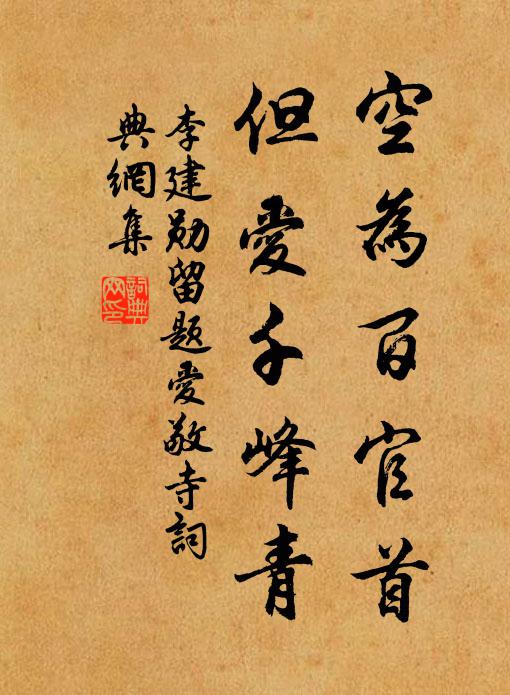 空為百官首
但愛千峰青
李建勛留題愛敬寺詞
典網集
詞典網印